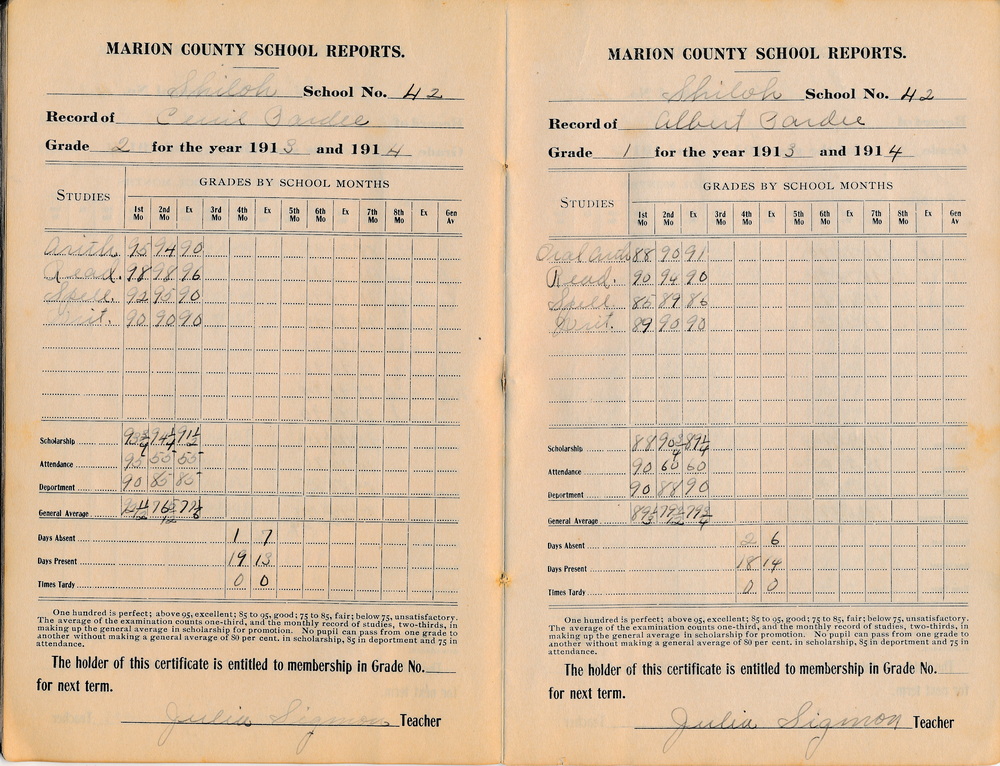 MARION COUNTY SCHOOL REPORTS.
Shiloh School No. 42
Record of Pardee
Grade 2 for the year 1913 and 1914
STUDIES GRADES BY SCHOOL MONTHS
1st Mo 2nd Mo Ex 3rd Mo 4th Mo Ex 5th Mo 6th Mo Ex 7th Mo 8th Mo Ex Gen Av
Arith. 95 94 90
Read. 98 98 96
Spell. 92 95 90
Writ. 90 90 90
Scholarship 93 3/4 94 1/4 91 1/2
Attendance 95 55 55
Deportment 90 85 85
General Average
Days Absent 1 7
Days Present 19 13
Times Tardy 0 0
One hundred is perfect; above 95, excellent; 85 to 95, good; 75 to 85, fair; below 75, unsatisfactory.
The average of the examination counts one-third, and the monthly record of studies, two-thirds, in
making up the general average in scholarship for promotion. No pupil can pass from one grade to
another without making a general average of 80 per cent. in scholarship, 85 in deportment and 75 in
attendance.
The holder of this certificate is entitled to membership in Grade No.
for next term.
Julia Sigmon Teacher
MARION COUNTY SCHOOL REPORTS.
Shiloh School No. 42
Record of Albert Pardee
Grade 1 for the year 1913 and 1914
STUDIES GRADES BY SCHOOL MONTHS
1st Mo 2nd Mo Ex 3rd Mo 4th Mo Ex 5th Mo 6th Mo Ex 7th Mo 8th Mo Ex Gen Av
Oral Arith 88 90 91
Read. 90 94 90
Spell 85 89 86
Writ. 89 90 90
Scholarship 88 90 3/4 89 1/4
Attendance 90 60 60
Deportment 90 88 90
General Average
Days Absent 2 6
Days Present 18 14
Times Tardy 0 0
One hundred is perfect; above 95, excellent; 85 to 95, good; 75 to 85, fair; below 75, unsatisfactory.
The average of the examination counts one-third, and the monthly record of studies, two-thirds, in
making up the general average in scholarship for promotion. No pupil can pass from one grade to
another without making a general average of 80 per cent. in scholarship, 85 in deportment and 75 in
attendance.
The holder of this certificate is entitled to membership in Grade No.
for next term.
Julia Sigmon Teacher